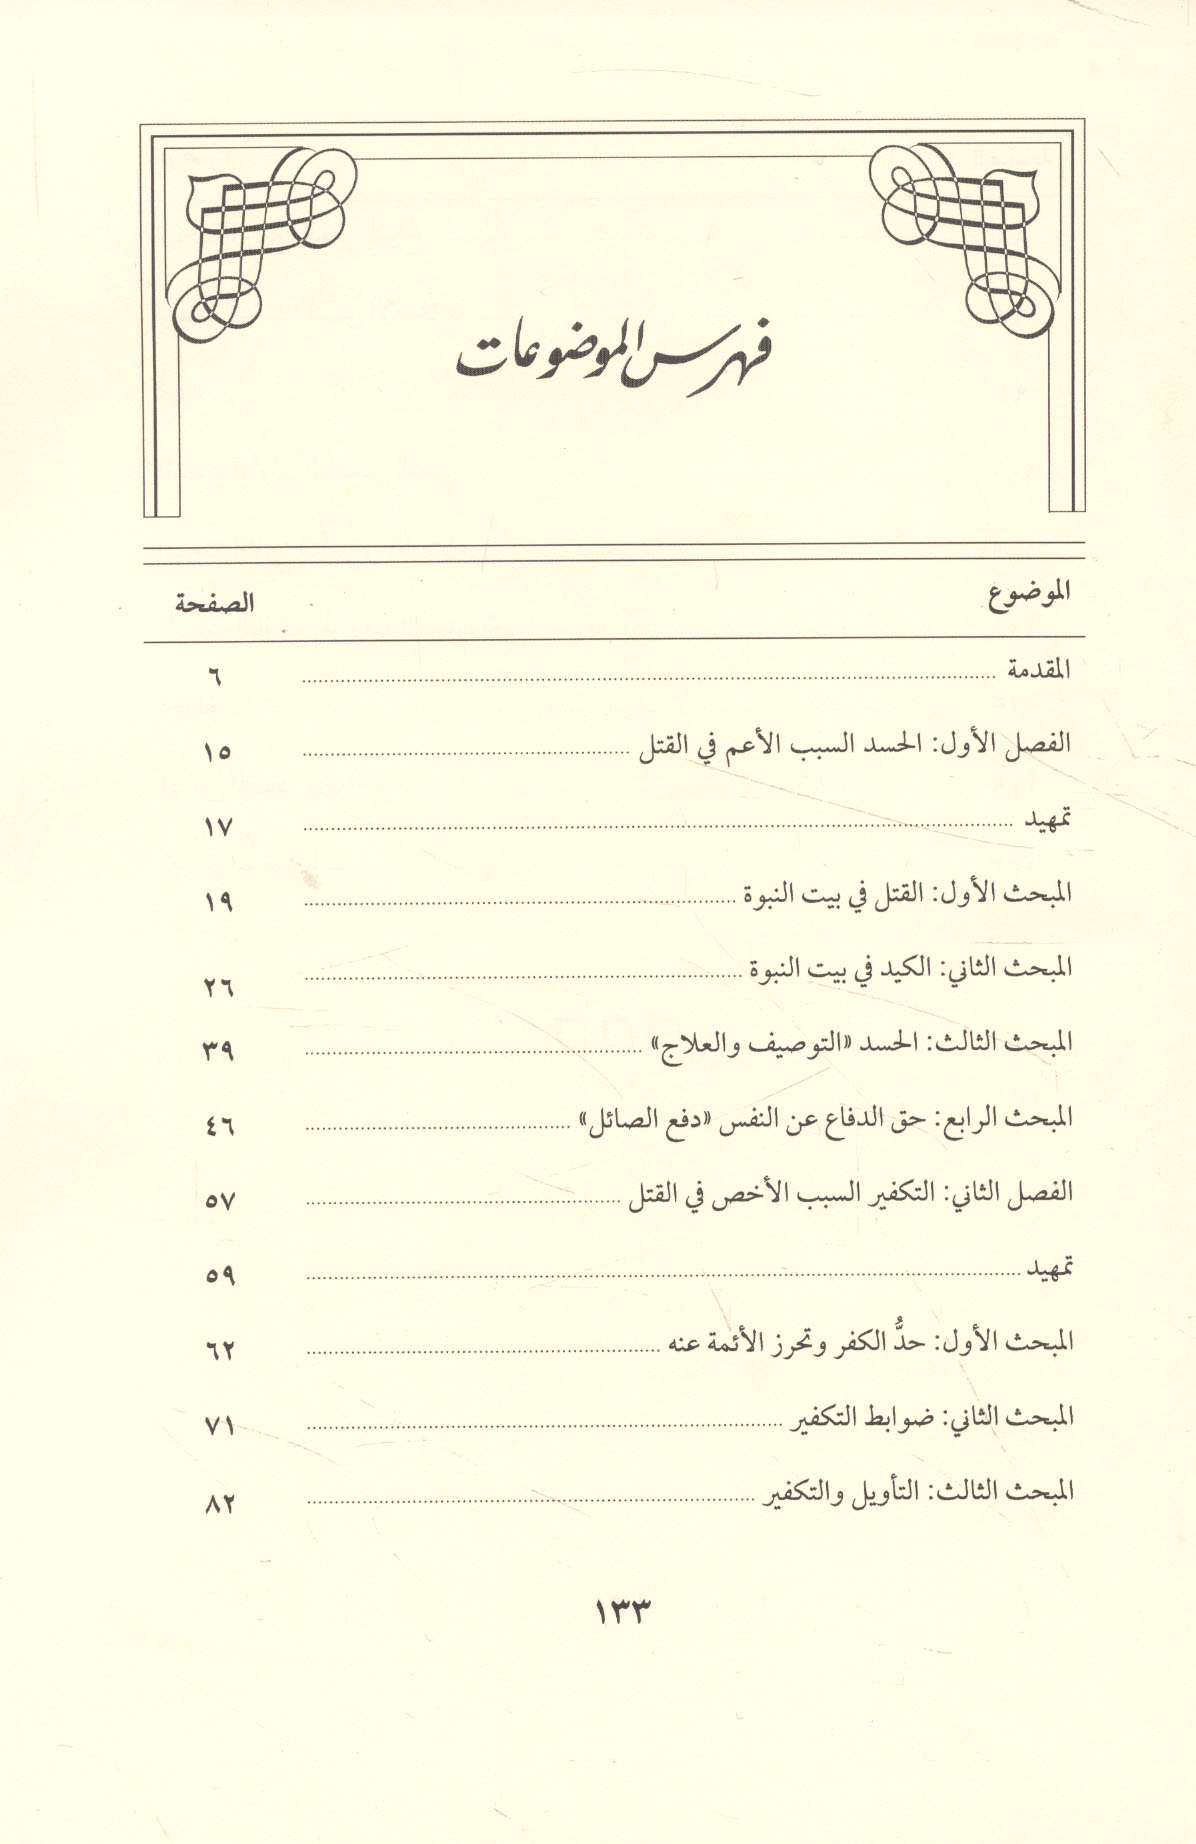 فهرس الموضوعات
الموضوع الصفحة
المقدمة ٦
الفصل الأول: الحسد السبب الأعم في القتل ١٥
تمهيد ١٧
المبحث الأول: القتل في بيت النبوة ١٩
المبحث الثاني: الكيد في بيت النبوة ٢٦
المبحث الثالث: الحسد «التوصيف والعلاج» ٣٩
المبحث الرابع: حق الدفاع عن النفس «دفع الصائل» ٤٦
الفصل الثاني: التكفير السبب الأخص في القتل ٥٧
تمهيد ٥٩
المبحث الأول: حدُّ الكفر وتحرز الأئمة عنه ٦٢
المبحث الثاني: ضوابط التكفير ٧١
المبحث الثالث: التأويل والتكفير ٨٢
١٣٣